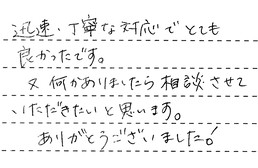 迅速、丁寧な対応でとても
良かったです。
又 何かありましたら 相談させて
いただきたいと思います。
ありがとうございました!